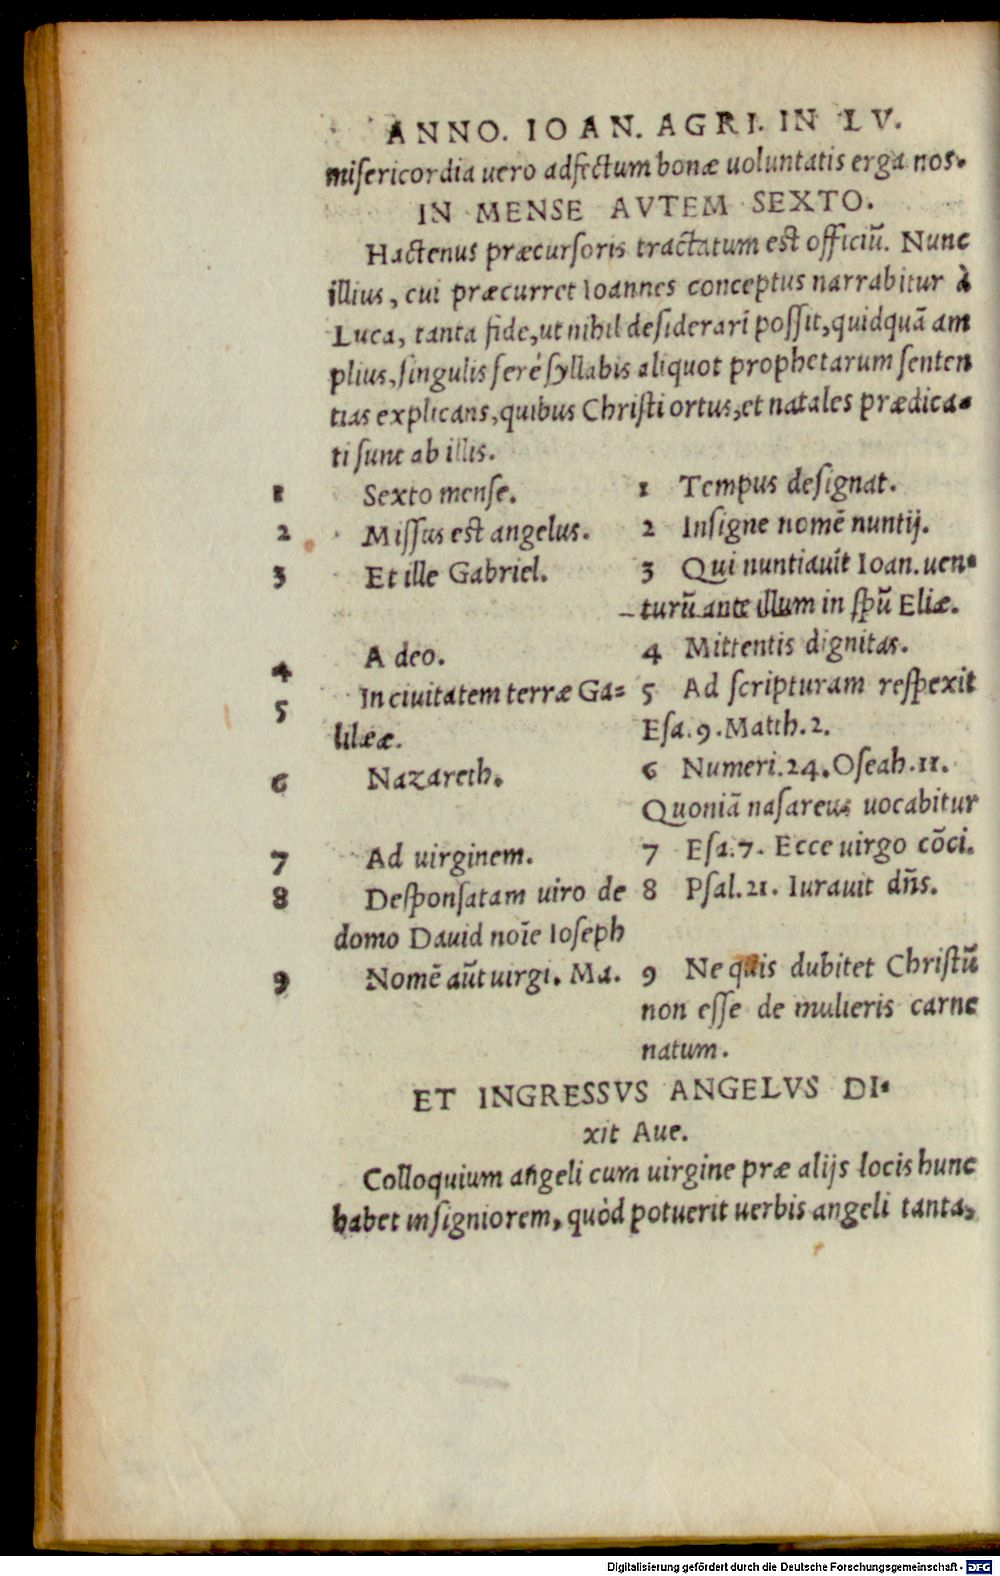 ANNO. IOAN. AGRI. IN LV.
miſericordia uero adfectum bonæ uoluntatis erga nos.
IN MENSE AVTEM SEXTO.
Hactenus præcurſoris tractatum est officiũ. Nunc
illius, cui præcurret Ioannes conceptus narrabitur à
Luca, tanta fide, ut nihil deſiderari poſſit, quidquã am
plius, ſingulis ferè ſyllabis aliquot prophetarum ſenten
tias explicans, quibus Chriſti ortus, et natales prædica-
ti ſunt ab illis.
1 Sexto menſe.
2 Miſſus est angelus.
3 Et ille Gabriel.
4 A deo.
5 In ciuitatem terræ Ga=
lilææ.
6 Nazareth.
7 Ad uirginem.
8 Deſponſatam uiro de
domo Dauid noĩe Ioſeph
9 Nomẽ aũt uirgi. Ma.
1 Tempus deſignat.
2 Inſigne nomẽ nuntij.
3 Qui nuntiauit Ioan. uen-
turũ ante illum in ſpũ Eliæ.
4 Mittentis dignitas.
5 Ad ſcripturam reſpexit
Eſa. 9. Matth. 2.
6 Numeri. 24. Oſeah. 11.
Quoniã naſareus uocabitur
7 Eſa. 7. Ecce uirgo cõci.
8 Pſal. 21. Iurauit dñs.
9 Ne quis dubitet Chriſtũ
non eſſe de mulieris carne
natum.
ET INGRESSVS ANGELVS DI-
xit Aue.
Colloquium angeli cum uirgine præ alijs locis hunc
habet inſigniorem, quòd potuerit uerbis angeli tanta,
Digitalisierung gefördert durch die Deutsche Forschungsgemeinschaft - DFG